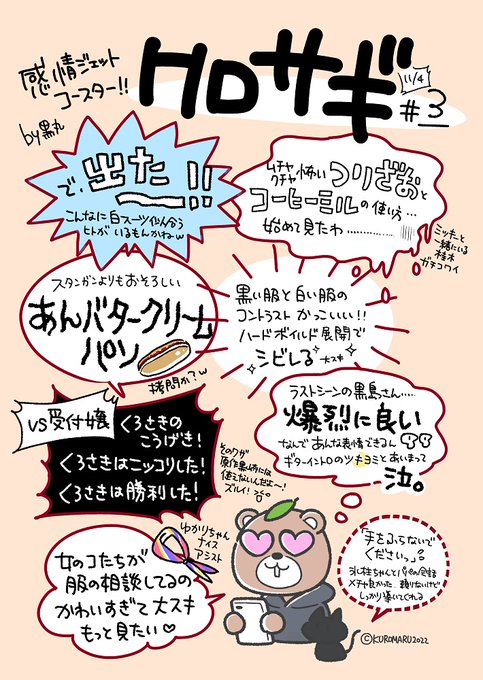 感情ジェット
コースター!!
by黒丸
クロサギ
11/4
#3
で、出た
〜!!
こんなに白スーツ似合う
ヒトがいるもんかねw
ムチャ
クチャ怖いつりざおと
コーヒーミルの使い方…
始めて見たわ……………
ミッキーと
一緒にいる
桂木
ガチコワイ
スタンガンよりもおそろしい
あんバタークリーム
パン
拷問か?w
黒い服と白い服の
コントラストかっこいい!!
ハードボイルド展開で
シビレる
大スキ
vs受付嬢
くろさきの
こうげき!
くろさきはニッコリした!
くろさきは勝利した!
そのワザ
原作黒崎には
使えないんだよ〜!
ズルイ!
ラストシーンの黒島さん....
爆烈に良い
なんであんな表情できるん
ギターイントロのツキヨミとあいまって
泣。
ゆかりちゃん
ナイス
アシスト
女のコたちが
服の相談してるの
かわいすぎて大スキ
もっと見たい♡
「手をふらないで
くださいっ」
氷柱ちゃんとパパの会話
メチャ良かった 頼りないけど
しっかり導いてくれる
©KUROMARU2022